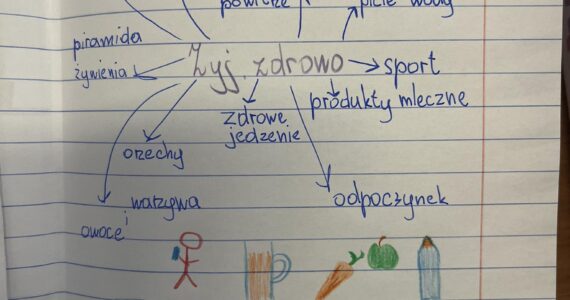 powietrze
picie wody
piramida
żywienia
Żyj zdrowo
sport
produkty mleczne
zdrowe
jedzenie
orzechy
warzywa
i
owoce
odpoczynek